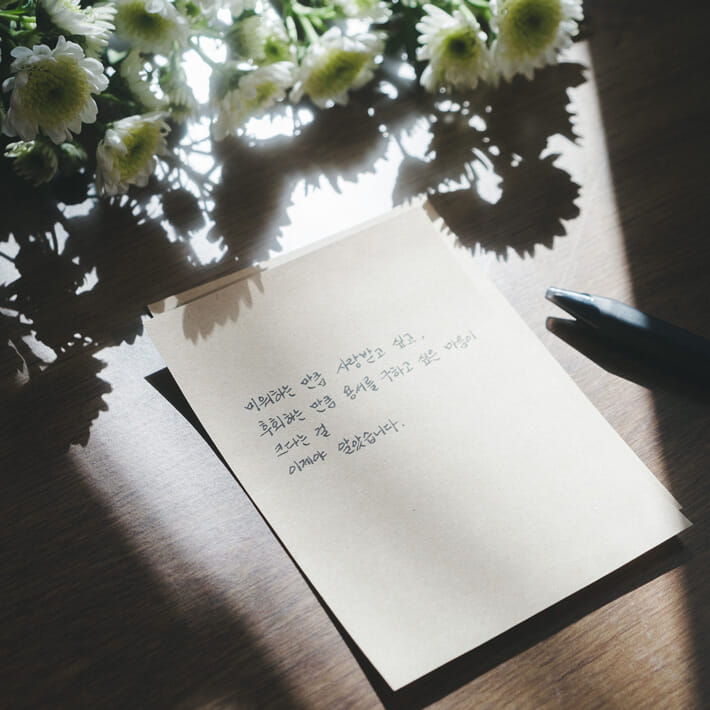 미워하는 만큼 사랑받고 싶고,
후회하는 만큼 용서를 구하고 싶은 마음이
크다는 걸
이제야 알았습니다.